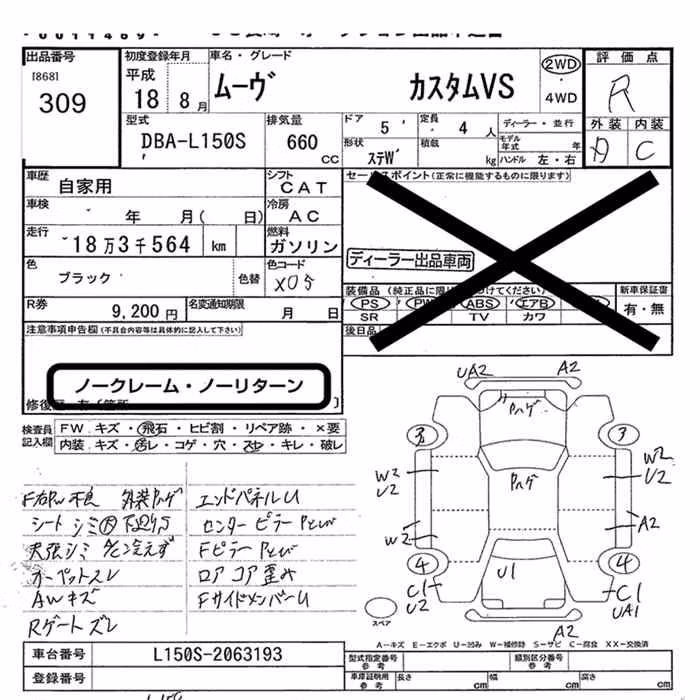 出品番号
[868]
309
初度登録年月
平成
18 8 月
車名・グレード
ムーヴ カスタムVS
2WD
・
4WD
評価点
R
外装 内装
D C
型式
DBA-L150S
排気量
660
CC
ドア
5
定員
4 人
ディーラー・並行
モデル年式 年
形状
ステW
積載
kg
ハンドル 左・右
車歴
自家用
シフト
CAT
車検
年 月( 日)
冷房
AC
走行
18万3千564 km
燃料
ガソリン
色
ブラック
色替
色コード
X05
R券
9,200円
名変通知期限
月 日
セールスポイント(正常に機能するものに限ります)
ディーラー出品車両
装備品
PS PW ABS エアB
SR TV カワ
新車保証書
有・無
後日品
注意事項申告欄(不具合内容等は具体的に記入して下さい)
ノークレーム・ノーリターン
検査員記入欄
FW キズ・飛石・ヒビ割・リペア跡・×要
内装 キズ・汚レ・コゲ・穴・スレ・キレ・破レ
F右PW不良 外装Pハゲ
シートシミ
天張シミ A/C冷えず
AWキズ
Rゲートズレ
エンドパネルU
センターピラー
Fピラー
ロアコア歪み
FサイドメンバーU
UA2 A2
Pハゲ
3 3
W2 U2
W2 U2
Pハゲ
W2
A2
4 4
U1
C1 U2
C1 UA1
A2
スペア
A-キズ E-エクボ U-凹み W-補修跡 S-サビ C-腐食 XX-交換済
車台番号
L150S-2063193
登録番号
型式指定番号
参考
類別区分番号
参考
車庫証明用
参考
長さ cm
幅 cm
高さ cm